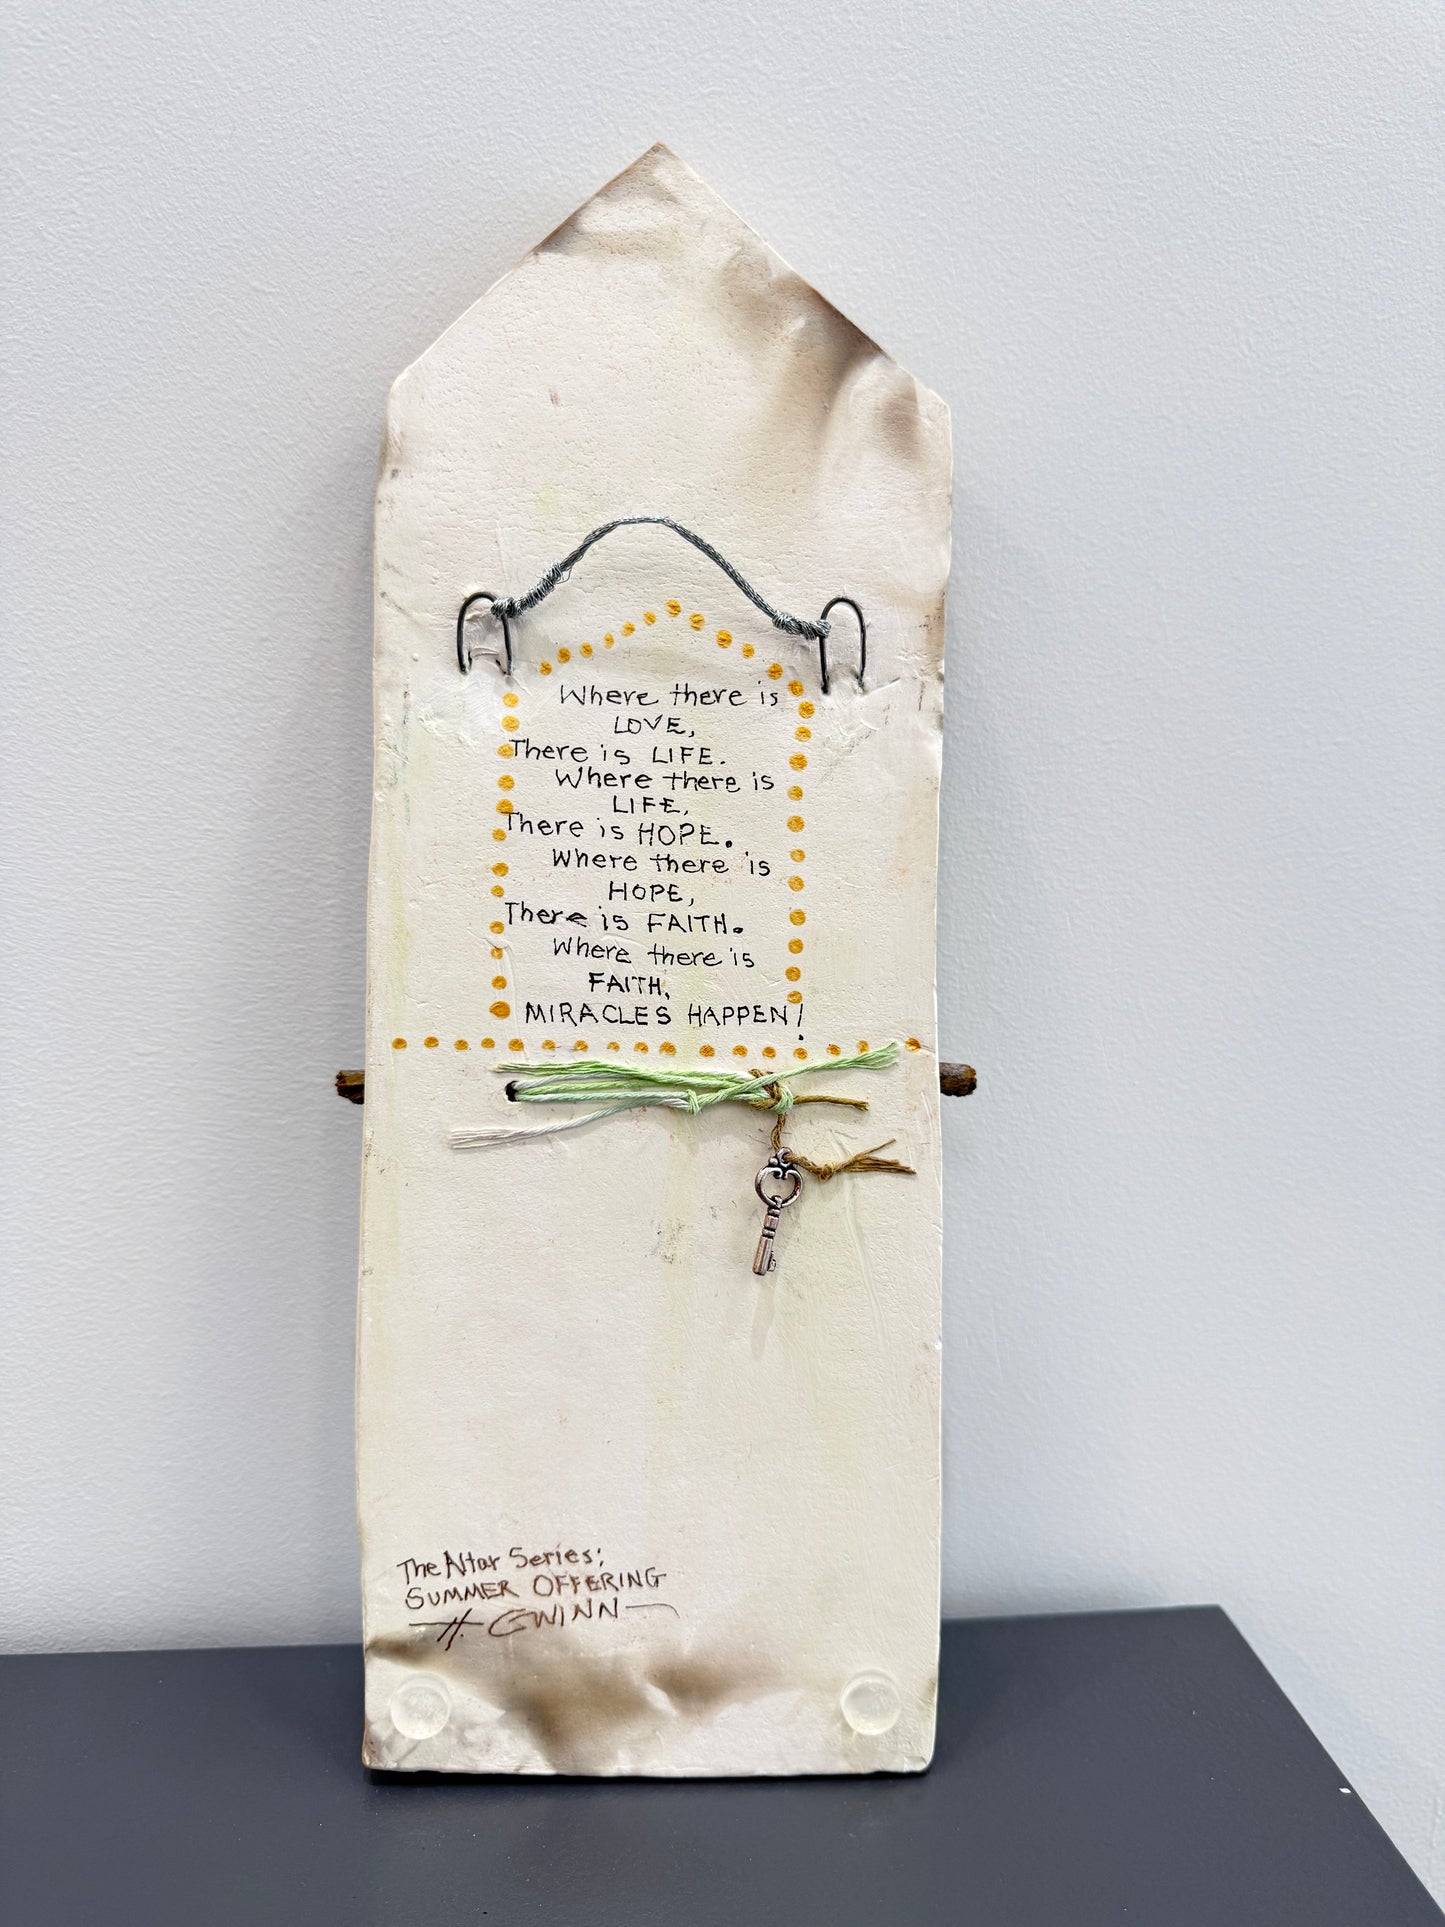 Where there is
LOVE,
There is LIFE.
Where there is
LIFE,
There is HOPE.
Where there is
HOPE,
There is FAITH.
Where there is
FAITH,
MIRACLES HAPPEN!
The Altar Series:
SUMMER OFFERING
H. GWINN